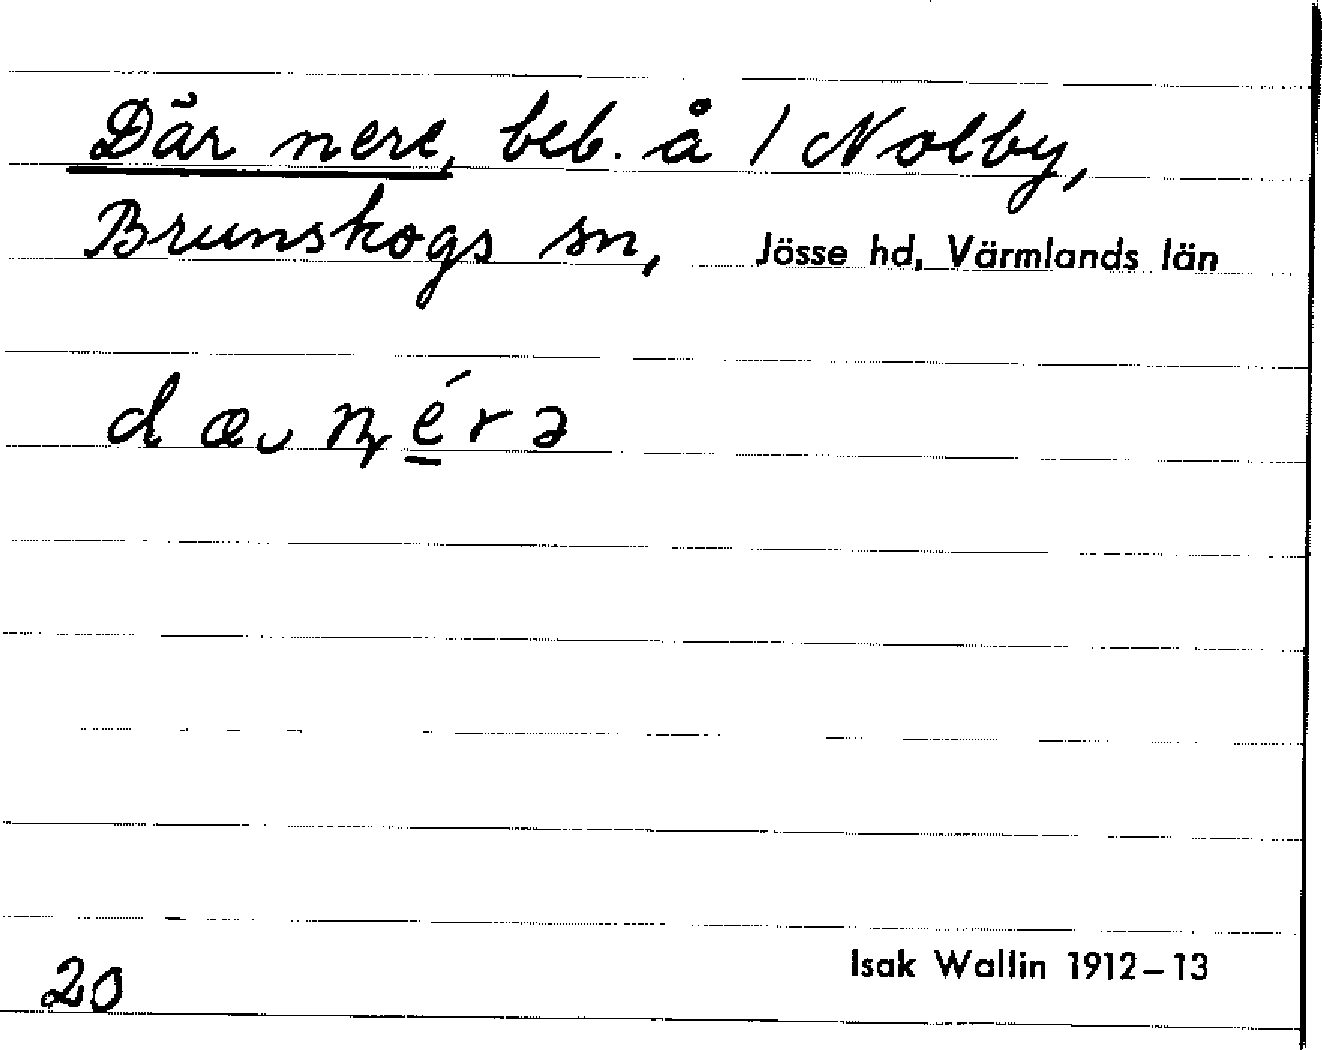 Där nere, beb. å 1 Nolby,
Brunskogs sn, Jösse hd, Värmlands län
dæ ɳérə
Isak Wallin 1912–13
20